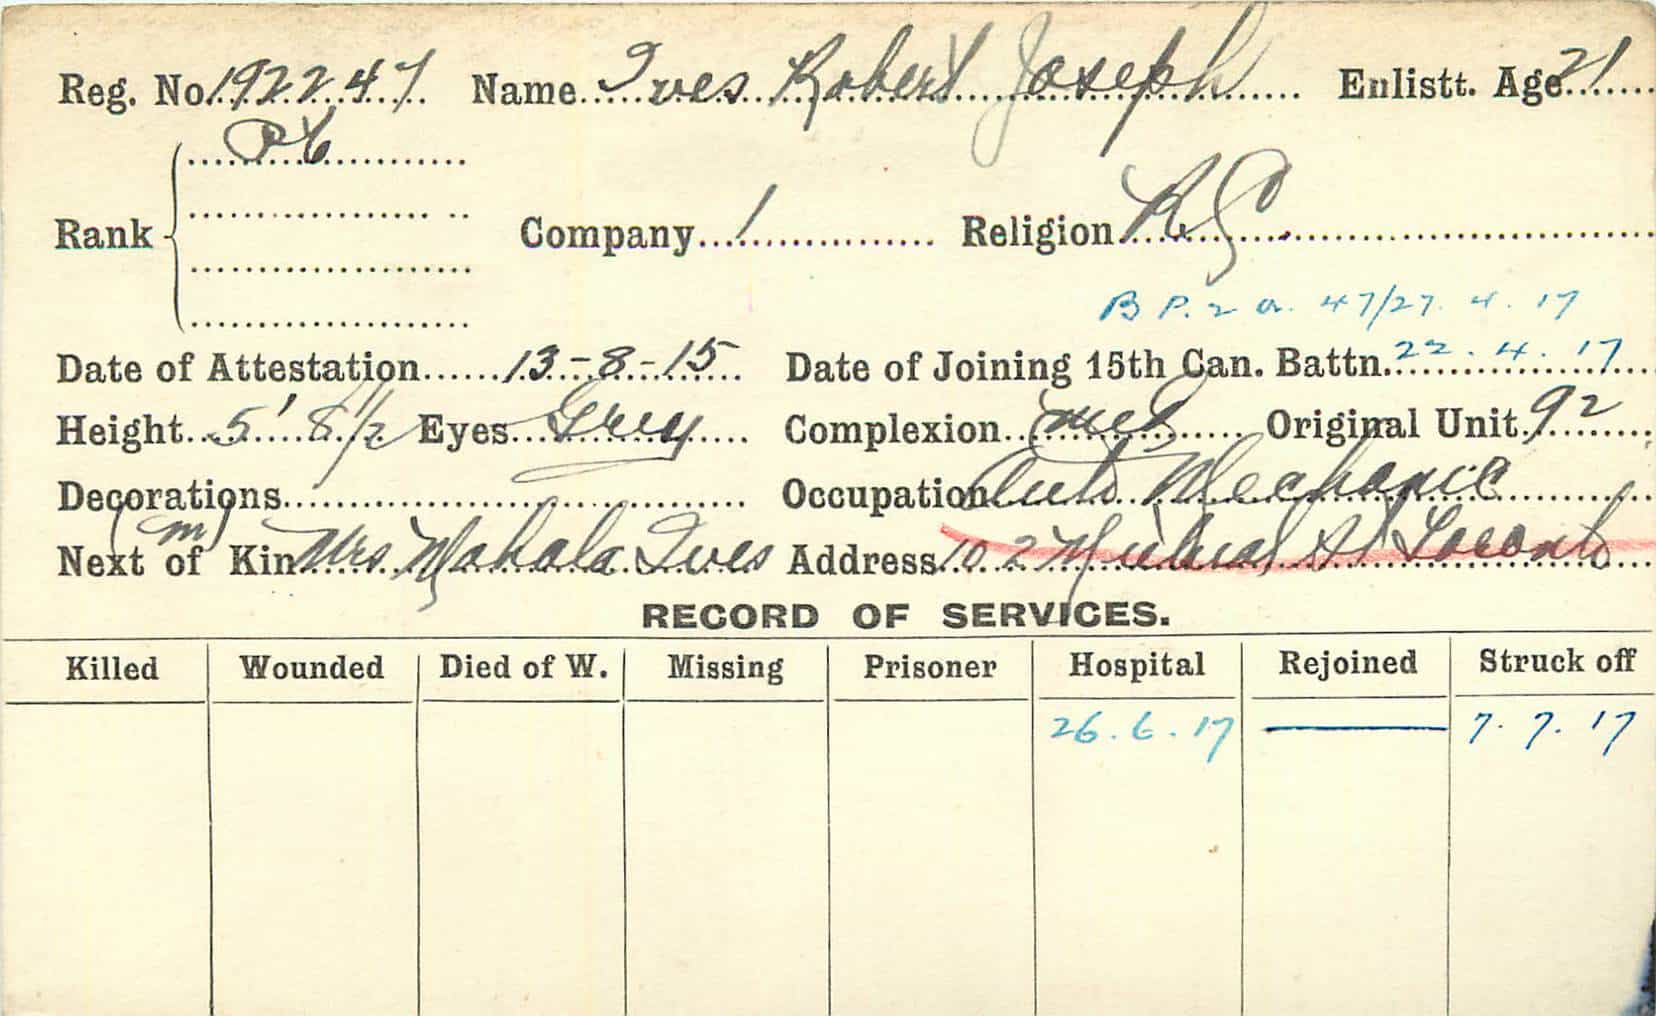 Reg. No. 192247 Name Ives Robert Joseph Enlistt. Age 21
Pte
Rank Company 1 Religion R C
B P. 2 a. 47/27. 4. 17
Date of Attestation 13-8-15 Date of Joining 15th Can. Battn. 22. 4. 17
Height 5' 8 1/2 Eyes Grey Complexion med Original Unit 92
Decorations Occupation Auto Mechanic
(m)
Next of Kin Mrs Mahala Ives Address 102 St Toronto
RECORD OF SERVICES.
Killed Wounded Died of W. Missing Prisoner Hospital Rejoined Struck off
26. 6. 17 — 7. 7. 17